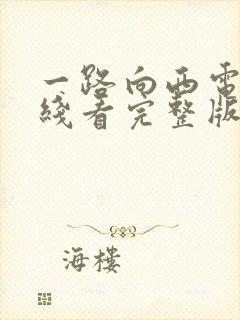 一路向西电
线看完整版
海楼